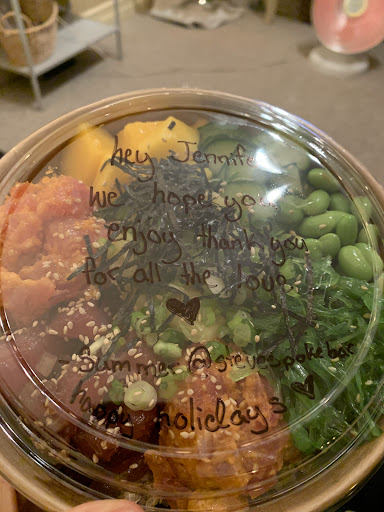 hey Jennifer
We hope you
enjoy thank you
for all the love
- Summer @steves poke bar
happy holidays